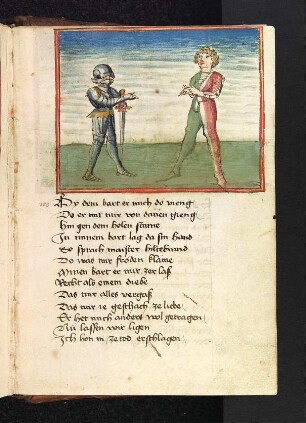 By dem bart er mich do vieng
Do er mit mir von danen gieng
Hin gen dem holen staine
In minem bart lag da sin hand
Er sprach maister hiltbrand
Do was mir fröden klaine
Minen bart er mir zerlaß
Recht als einem diebe
Das mir alles vergaß
Das mir ie geschach ze liebe
Er het mich anders wol getragen
Nu lassen wir ligen
Ich bin ze tod erschlagen